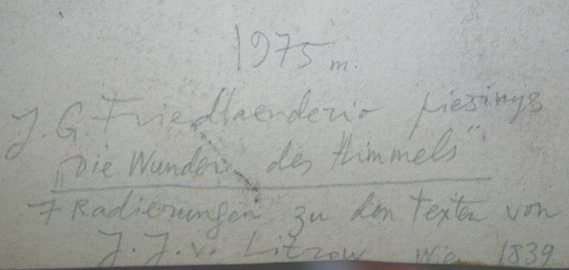 1975 m.
J. G. Friedlaenderio piešinys
„Die Wunder des Himmels“
7 Radierungen zu den Texten von
J. J. v. Litrow Wien 1839